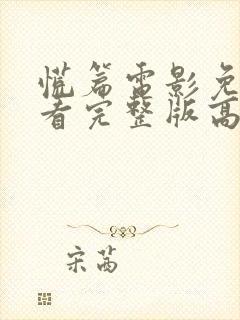 慌篇雷影免
看完整版高
宋茜